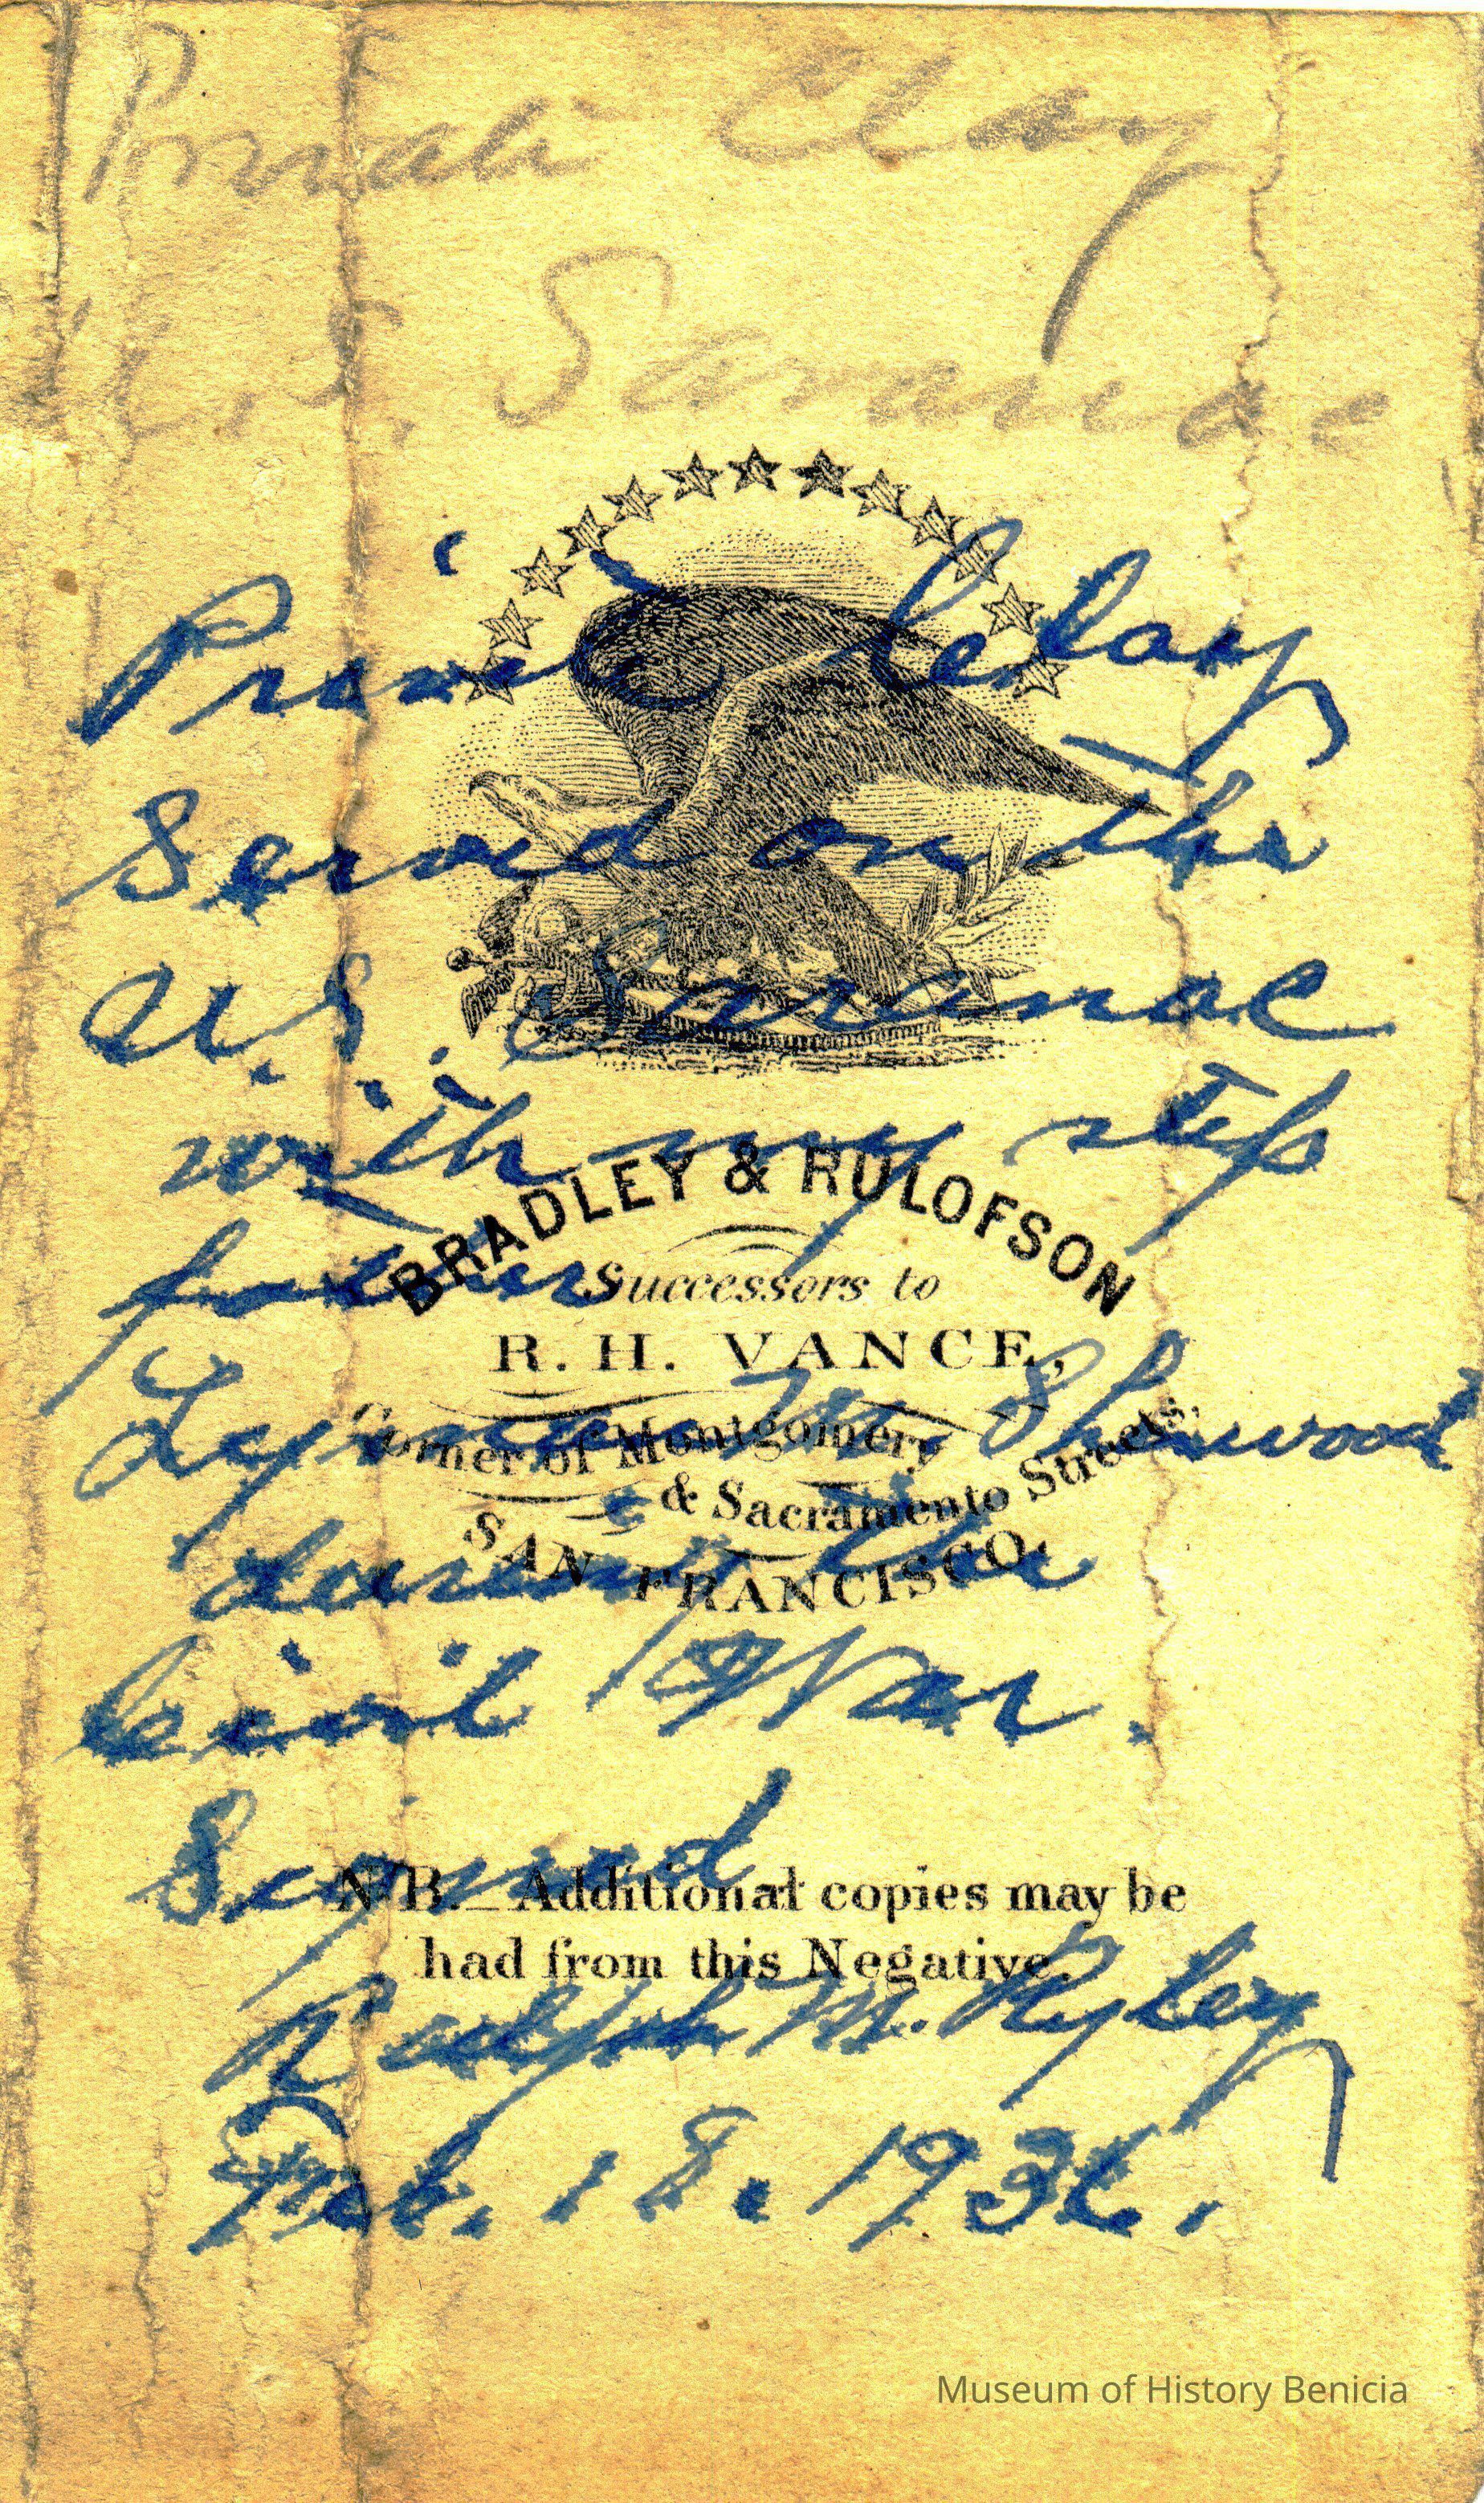 Private Clay
U.S. Saranac
Private Clay
Served on the
U.S. Saranac
with my step
father
Lyman M. Sherwood
during the
Civil War.
Signed
Ralph M. Ryley
Feb. 18. 1936.
BRADLEY & RULOFSON
Successors to
R. H. VANCE,
Corner of Montgomery
& Sacramento Streets,
SAN FRANCISCO.
N.B._Additional copies may be
had from this Negative.
Museum of History Benicia